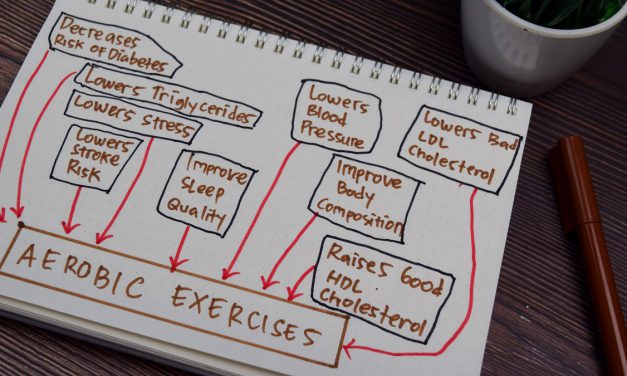 Decreases
Risk of Diabetes
Lowers Triglycerides
Lowers Stress
Lowers
Stroke
Risk
Improve
Sleep
Quality
Lowers
Blood
Pressure
Lowers Bad
LDL
Cholesterol
Improve
Body
Composition
Raises Good
HDL
Cholesterol
AEROBIC EXERCISES